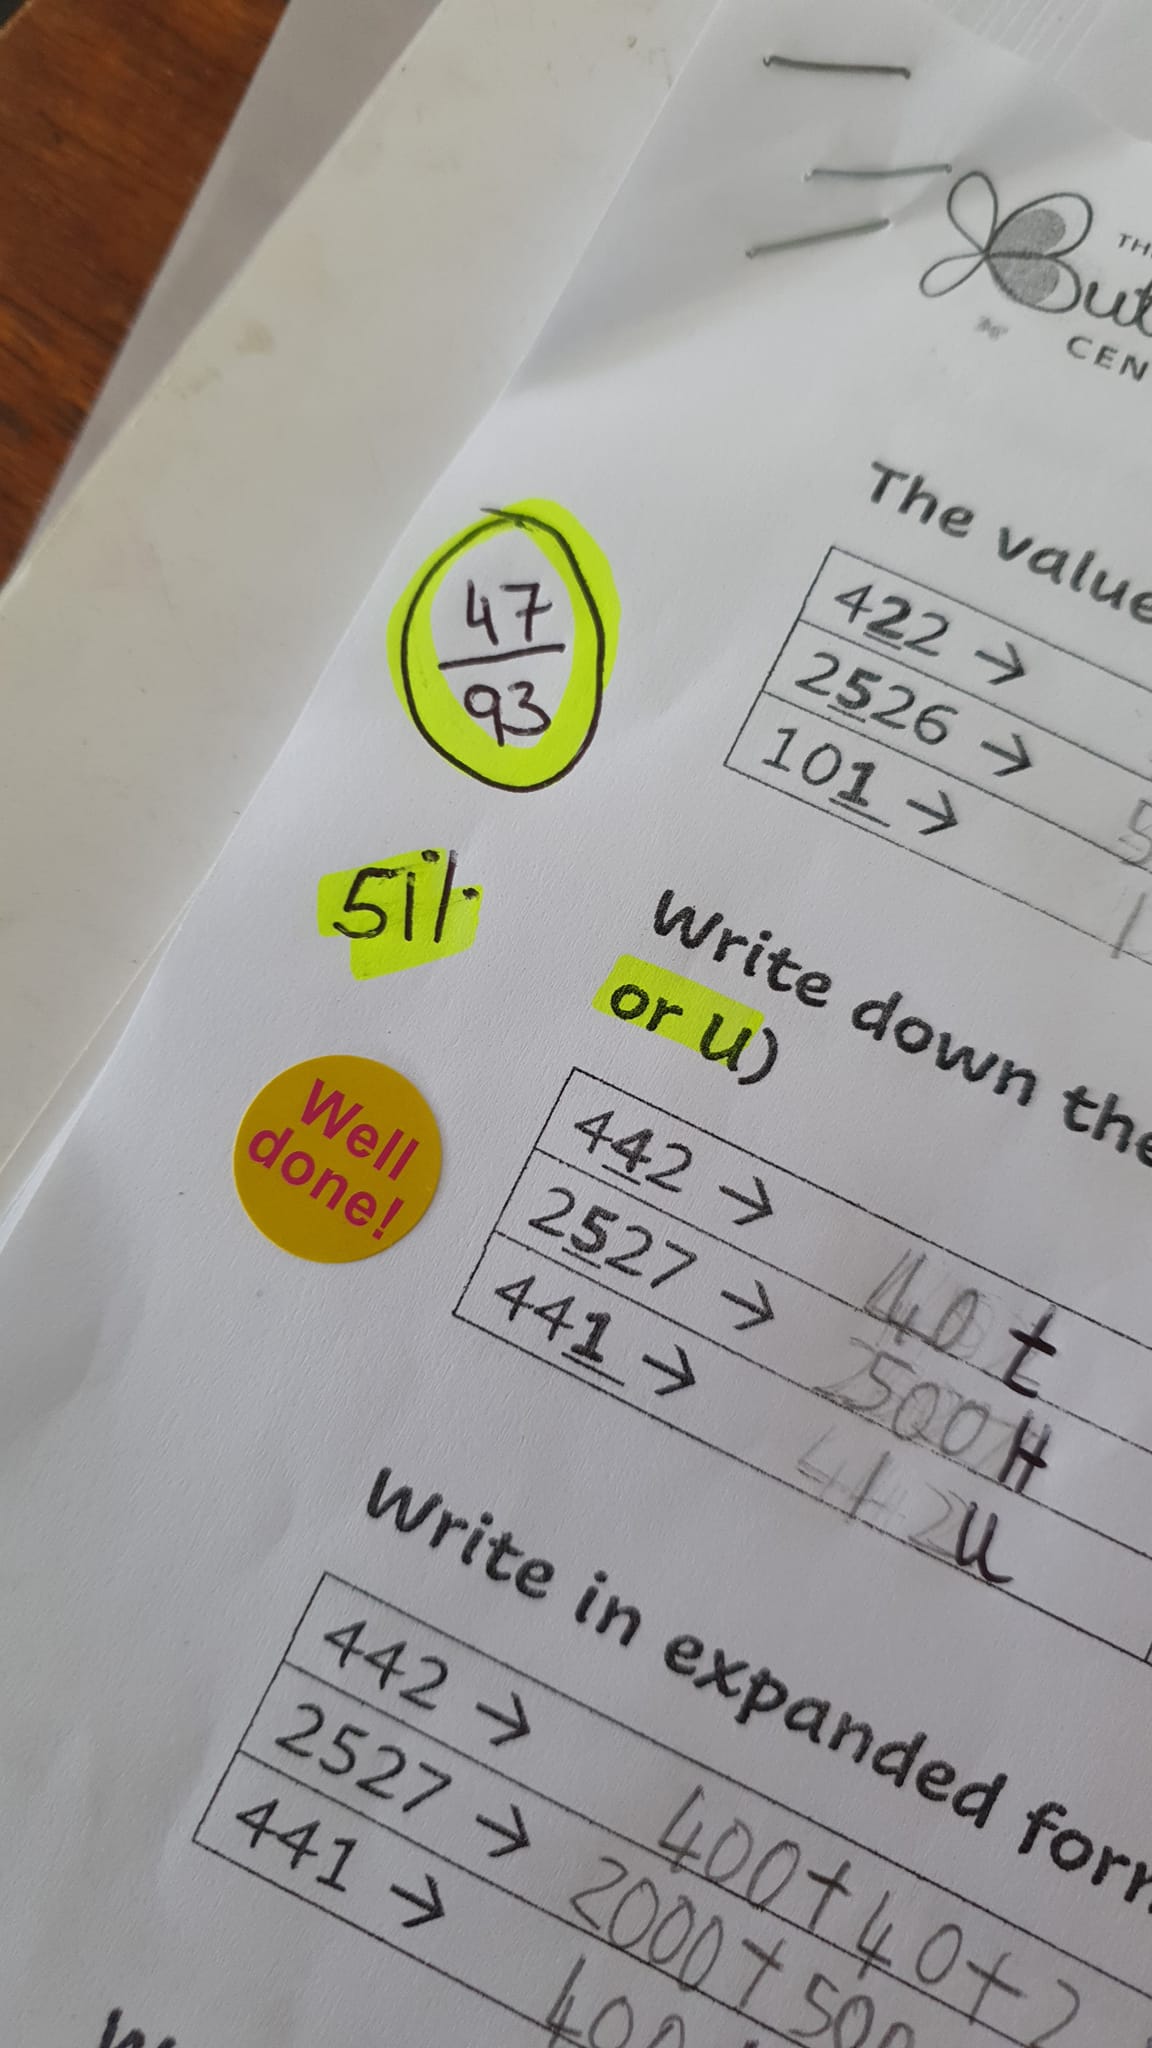 CEN
The value
47
93
422 →
2526 →
101 →
51%
Write down the
or U)
Well
done!
442 → 40 t
2527 → 500 H
441 → U
Write in expanded form
442 → 400+40+2
2527 → 2000+500
441 → 400